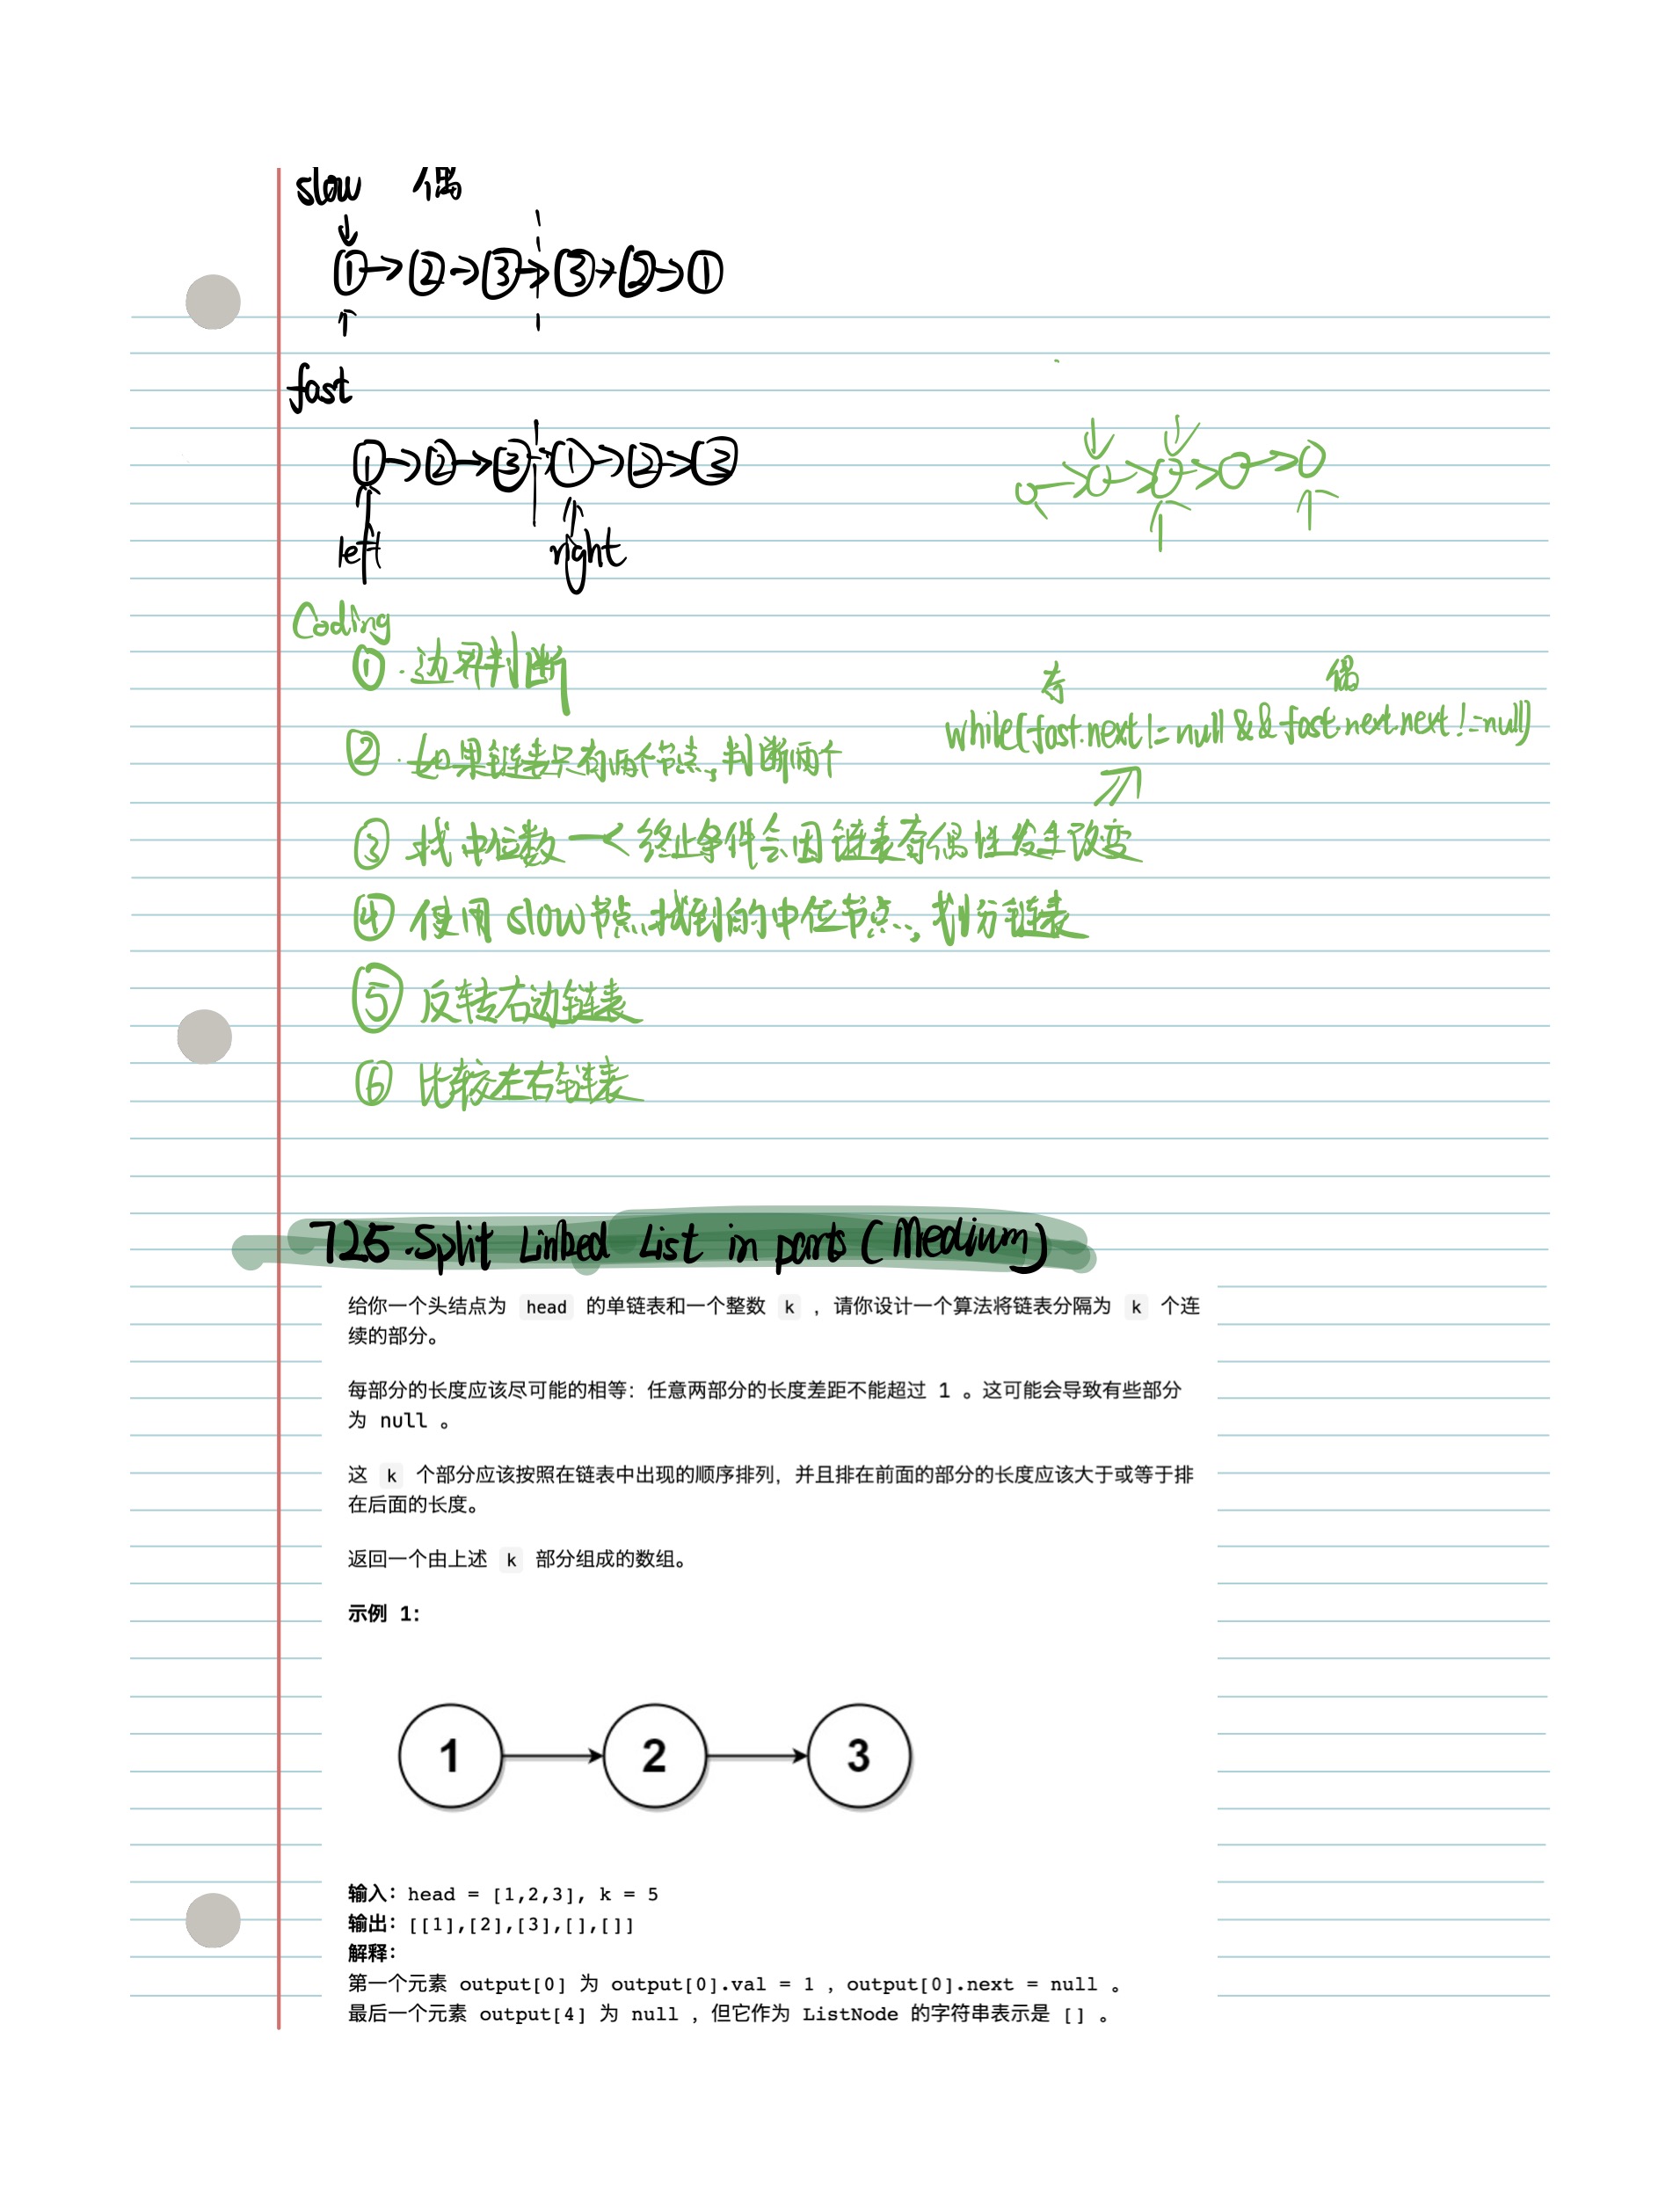 slow 偶
① → ② → ③ → ③ → ② → ①
fast
① → ② → ③ → ① → ② → ③
left right
Coding
① 边界判断
奇 偶
while(fast.next!=null && fast.next.next!=null)
② 如果链表只有两个节点,判断两个
③ 找中位数 —< 终止条件会因链表奇偶性发生改变
④ 使用slow节点找到的中位节点,划分链表
⑤ 反转右边链表
⑥ 比较左右链表
725.Split Linked List in parts (Medium)
给你一个头结点为 head 的单链表和一个整数 k ，请你设计一个算法将链表分隔为 k 个连
续的部分。
每部分的长度应该尽可能的相等：任意两部分的长度差距不能超过 1 。这可能会导致有些部分
为 null 。
这 k 个部分应该按照在链表中出现的顺序排列，并且排在前面的部分的长度应该大于或等于排
在后面的长度。
返回一个由上述 k 部分组成的数组。
示例 1：
1 2 3
输入：head = [1,2,3], k = 5
输出：[[1],[2],[3],[],[]]
解释：
第一个元素 output[0] 为 output[0].val = 1 ，output[0].next = null 。
最后一个元素 output[4] 为 null ，但它作为 ListNode 的字符串表示是 [] 。